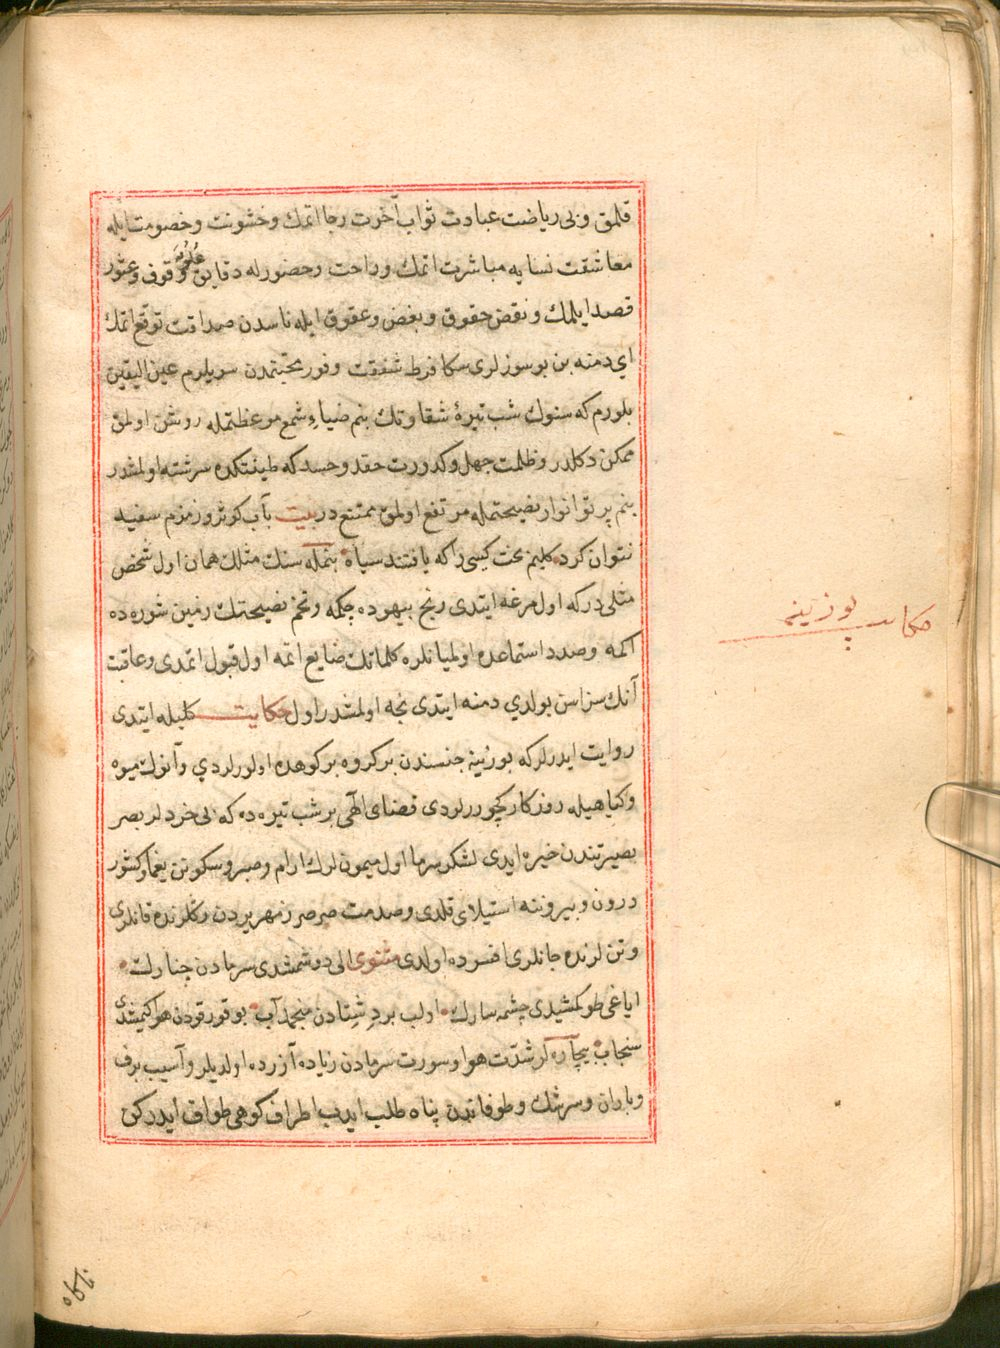 قلمق و بی ریاضت عبادت ثواب آخرت رجا اتمك و خشونت و خصومتله
معاشقت نسایه مباشرت اتمك و راحت و حضور له دقایق علومه وقوف و عثور
قصد ایلمك و نقض حقوق و بغض و عقوق ایله ناسدن صداقت توقع اتمك
ای دمنه بن بو سوزلری سكا فرط شفقت و فور محبتمدن سویلرم عین الیقین
بلورم كه سنوك شب تیرهٔ شقاوتك بنم ضیاء شمع موعظتمله روشن اولمق
ممكن دكلدر و ظلمت جهل و كدورت حقد و حسد كه طینتكده سرشته اولمشدر
بنم پرتو انوار نصیحتمله مرتفع اولمق ممتنع در بیت بآب كوثر و زمزم سفید
نتوان كرد كلیم بخت كسی را كه بافتند سیاه بنمله سنك مثلك همان اول شخص
مثلی در كه اول مرغه ایتدی رنج بیهوده چكمه و تخم نصیحتك زمین شوره ده
اكمه و صدد استماعده اولمیانلره كلماتك ضایع اتمه اول قبول اتمدی و عاقبت
آنك سزاسن بولدی دمنه ایتدی نجه اولمشدر اول حكایت كلیله ایتدی
روایت ایدرلر كه بوزینه جنسندن بر كروه بر كوهده اولورلردی و آنوك میوه
و كیاهیله روزكار كچوررلردی قضای الهی بر شب تیره ده كه بی خردلر بصر
بصیرتندن خیره ایدی لشكر سرما اول میمونلرك ارام و صبر و سكوتن یغما و كشور
درون و بیرونه استیلای قلدی و صدمت صرصر زمهریردن ركلرنده قانلری
و تن لرنده جانلری افسرده اولدی مثنوی الی دوشمشدی سرمادن چنارك
ایاغی طوكمشیدی چشمه سارك اولب برد شتادن منجمد آب بو قورقودن هوا كیمشدی
سنجاب بیچاره لر شدت هوا و سورت سرمادن زیاده آزرده اولدیلر و آسیب برف
و باران و سرشك و طوفاندن پناه طلب ایدب اطراف كوهی طواف ایدركن
حكایت بوزینه
ناكاه